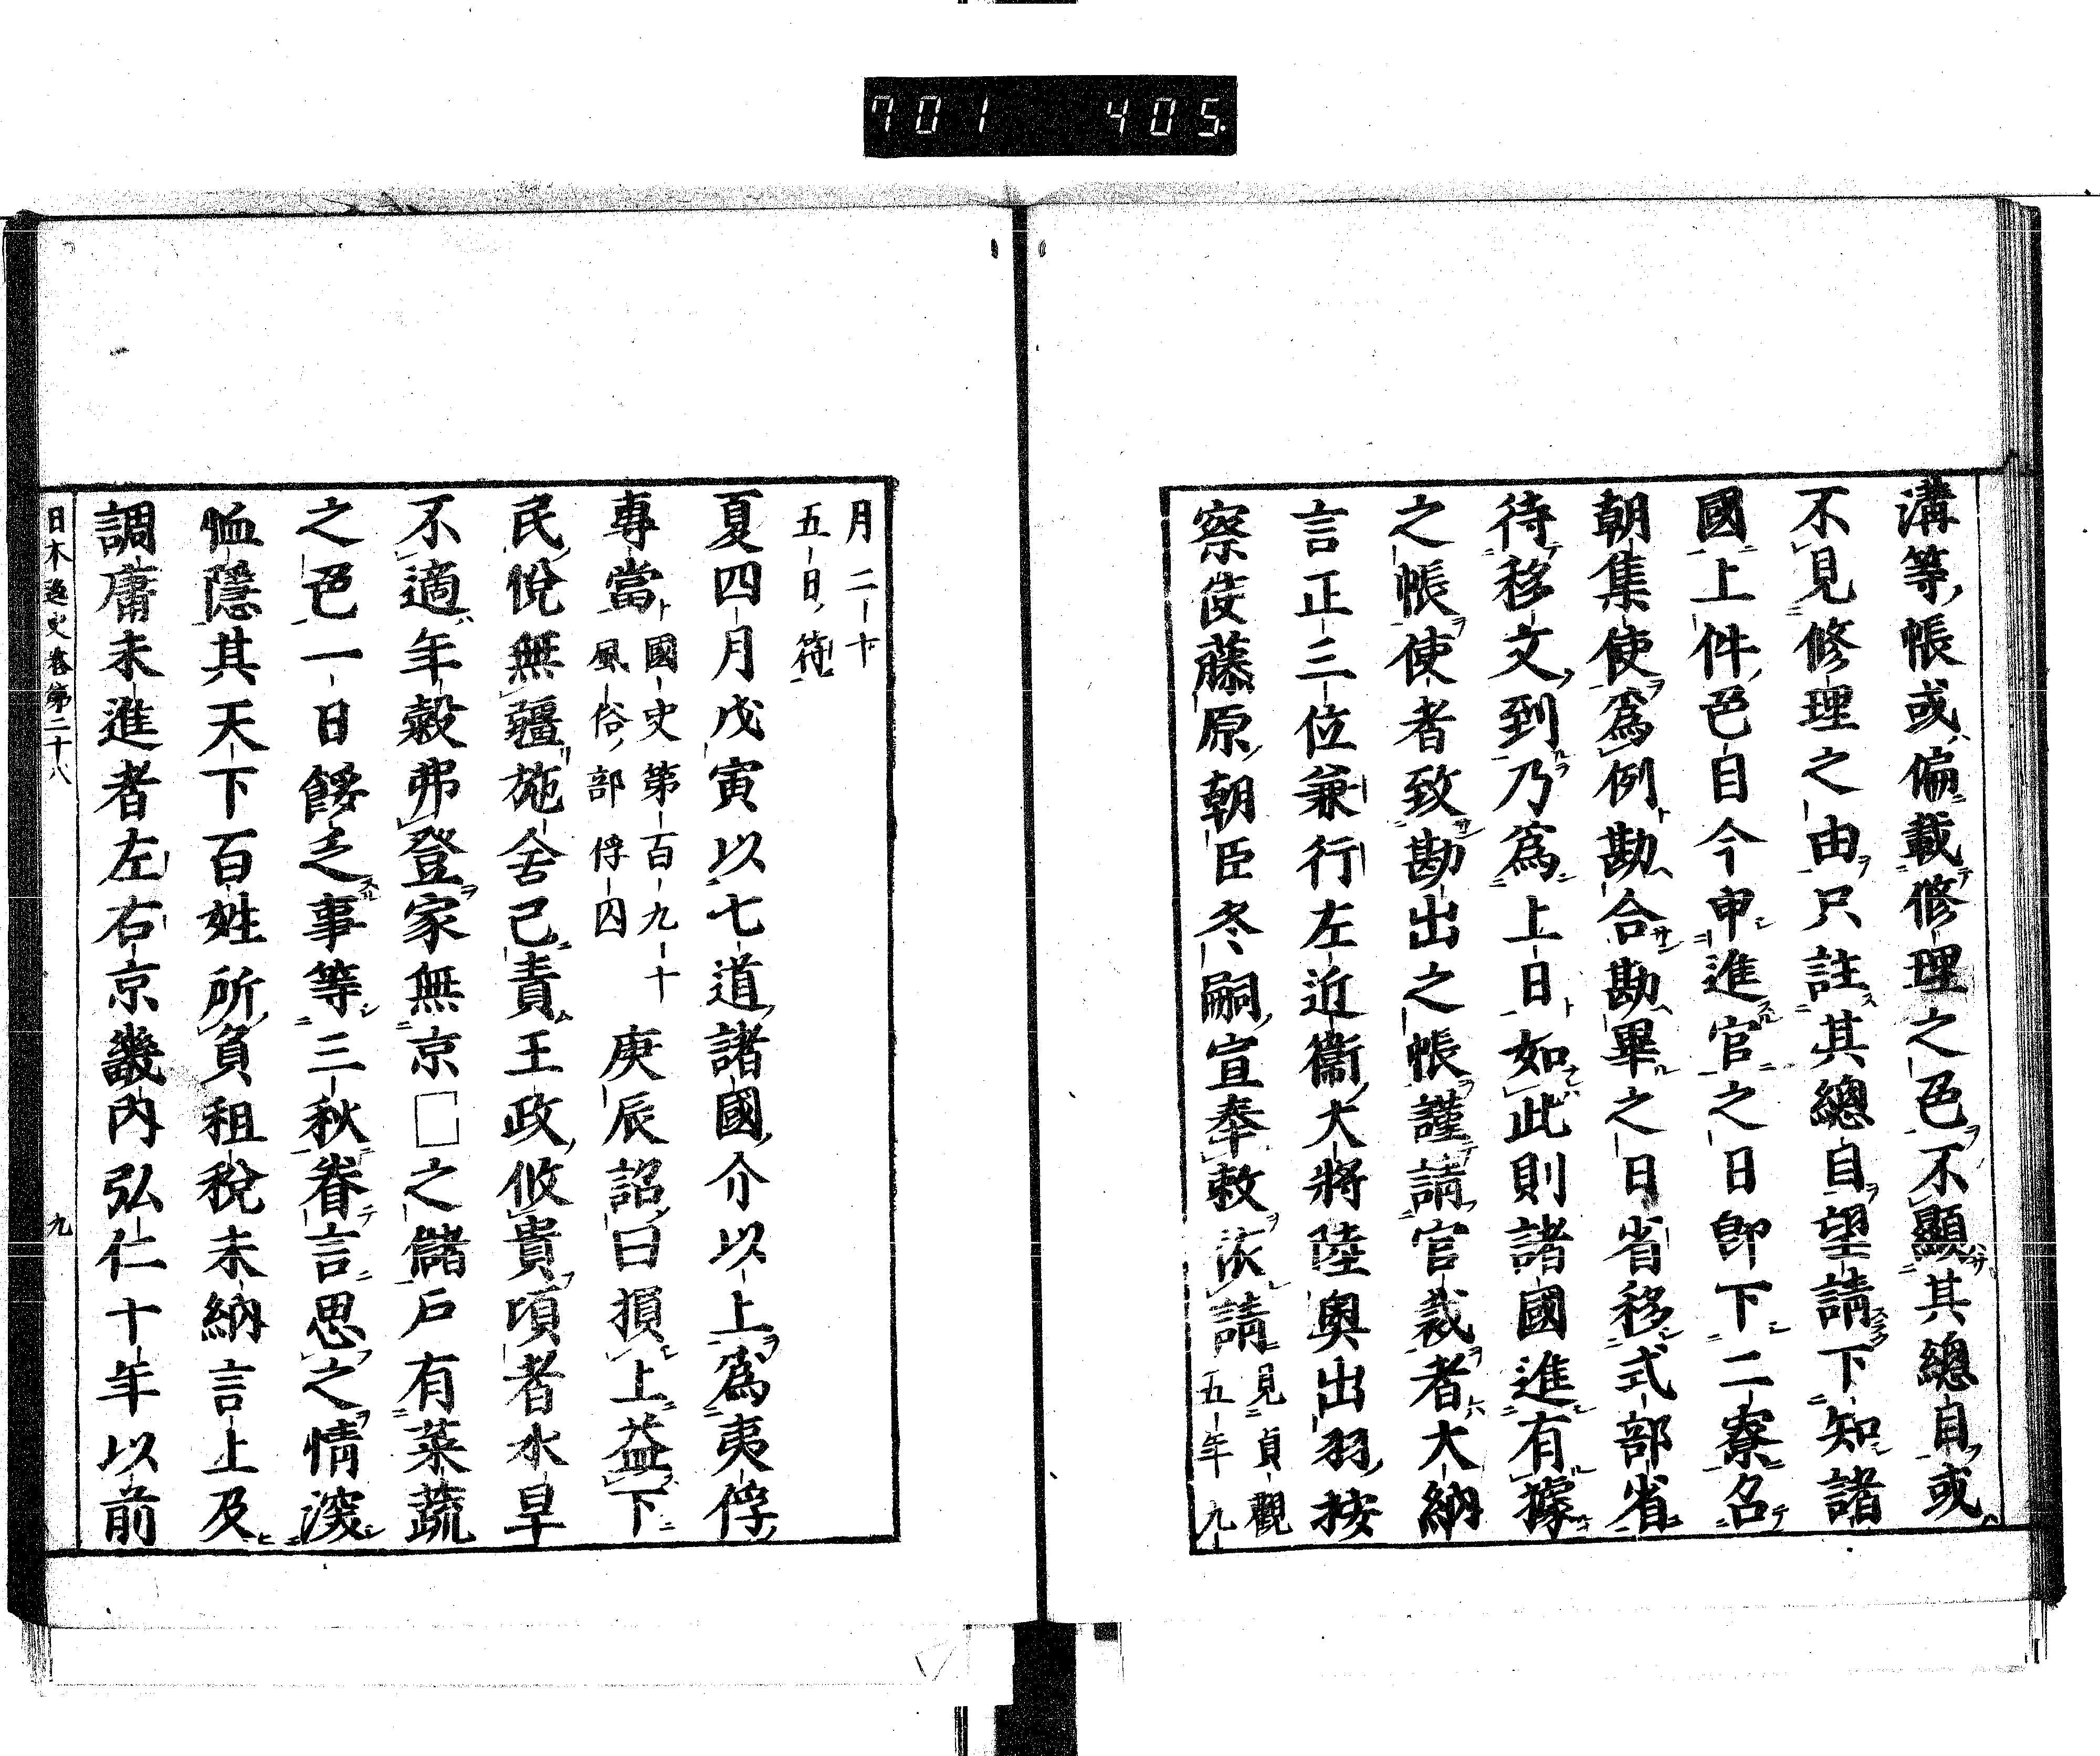 701 405
溝等帳或偏載修理之色不顯其總自或
不見修理之由只註其總自望請下知諸
國上件色自今申進官之日卽下二寮名
朝集使爲例勘合勘畢之日省移式部省
待移文到乃爲上日如此則諸國進有據
之帳使者致勘出之帳謹請官裁者大納
言正三位兼行左近衞大將陸奧出羽按
察使藤原朝臣冬嗣宣奉敕依請見貞觀
五年九
月二十
五日符
夏四月戊寅以七道諸國介以上爲夷俘
專當國史第百九十
風俗部俘囚
庚辰詔曰損上益下
民悅無疆施舍己責王政攸貴頃者水旱
不適年穀弗登家無京□之儲戶有菜蔬
之色一日餒乏事等三秋眷言思之情深
恤隱其天下百姓所負租稅未納言上及
調庸未進者左右京畿內弘仁十年以前
日本逸史卷第二十八
九